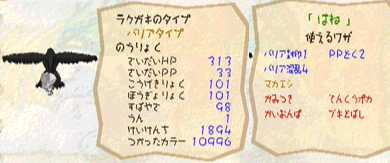 ラクガキのタイプ
バリアタイプ
のうりょく
さいだいHP 313
さいだいPP 33
こうげきりょく 101
ぼうぎょりょく 101
すばやさ 98
うん 1
けいけんち 1894
つかったカラー 10996
「はね」
使えるワザ
バリア封印1 PPどく2
バリア混乱4
マカエシ
かみつき てんくうポカ
かいおんぱ ブキとばし